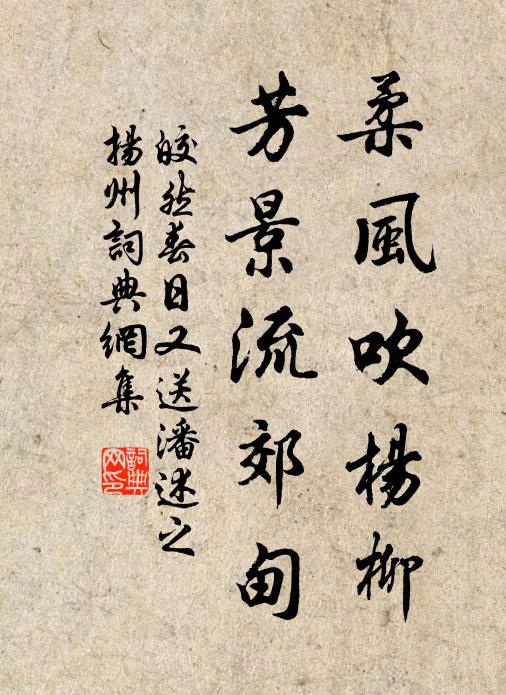 柔風吹楊柳
芳景流郊甸
皎然春日又送潘述之
揚州詞典網集
詞典網印